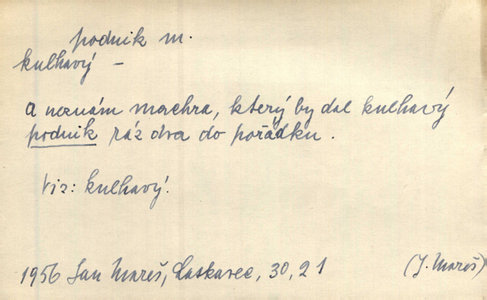 podnik m.
kulhavý –
a neznám machra, který by dal kulhavý
podnik ráz dva do pořádku.
Viz: kulhavý.
1956 Jan Mareš, Laskavec, 30, 21 (J. Mareš)